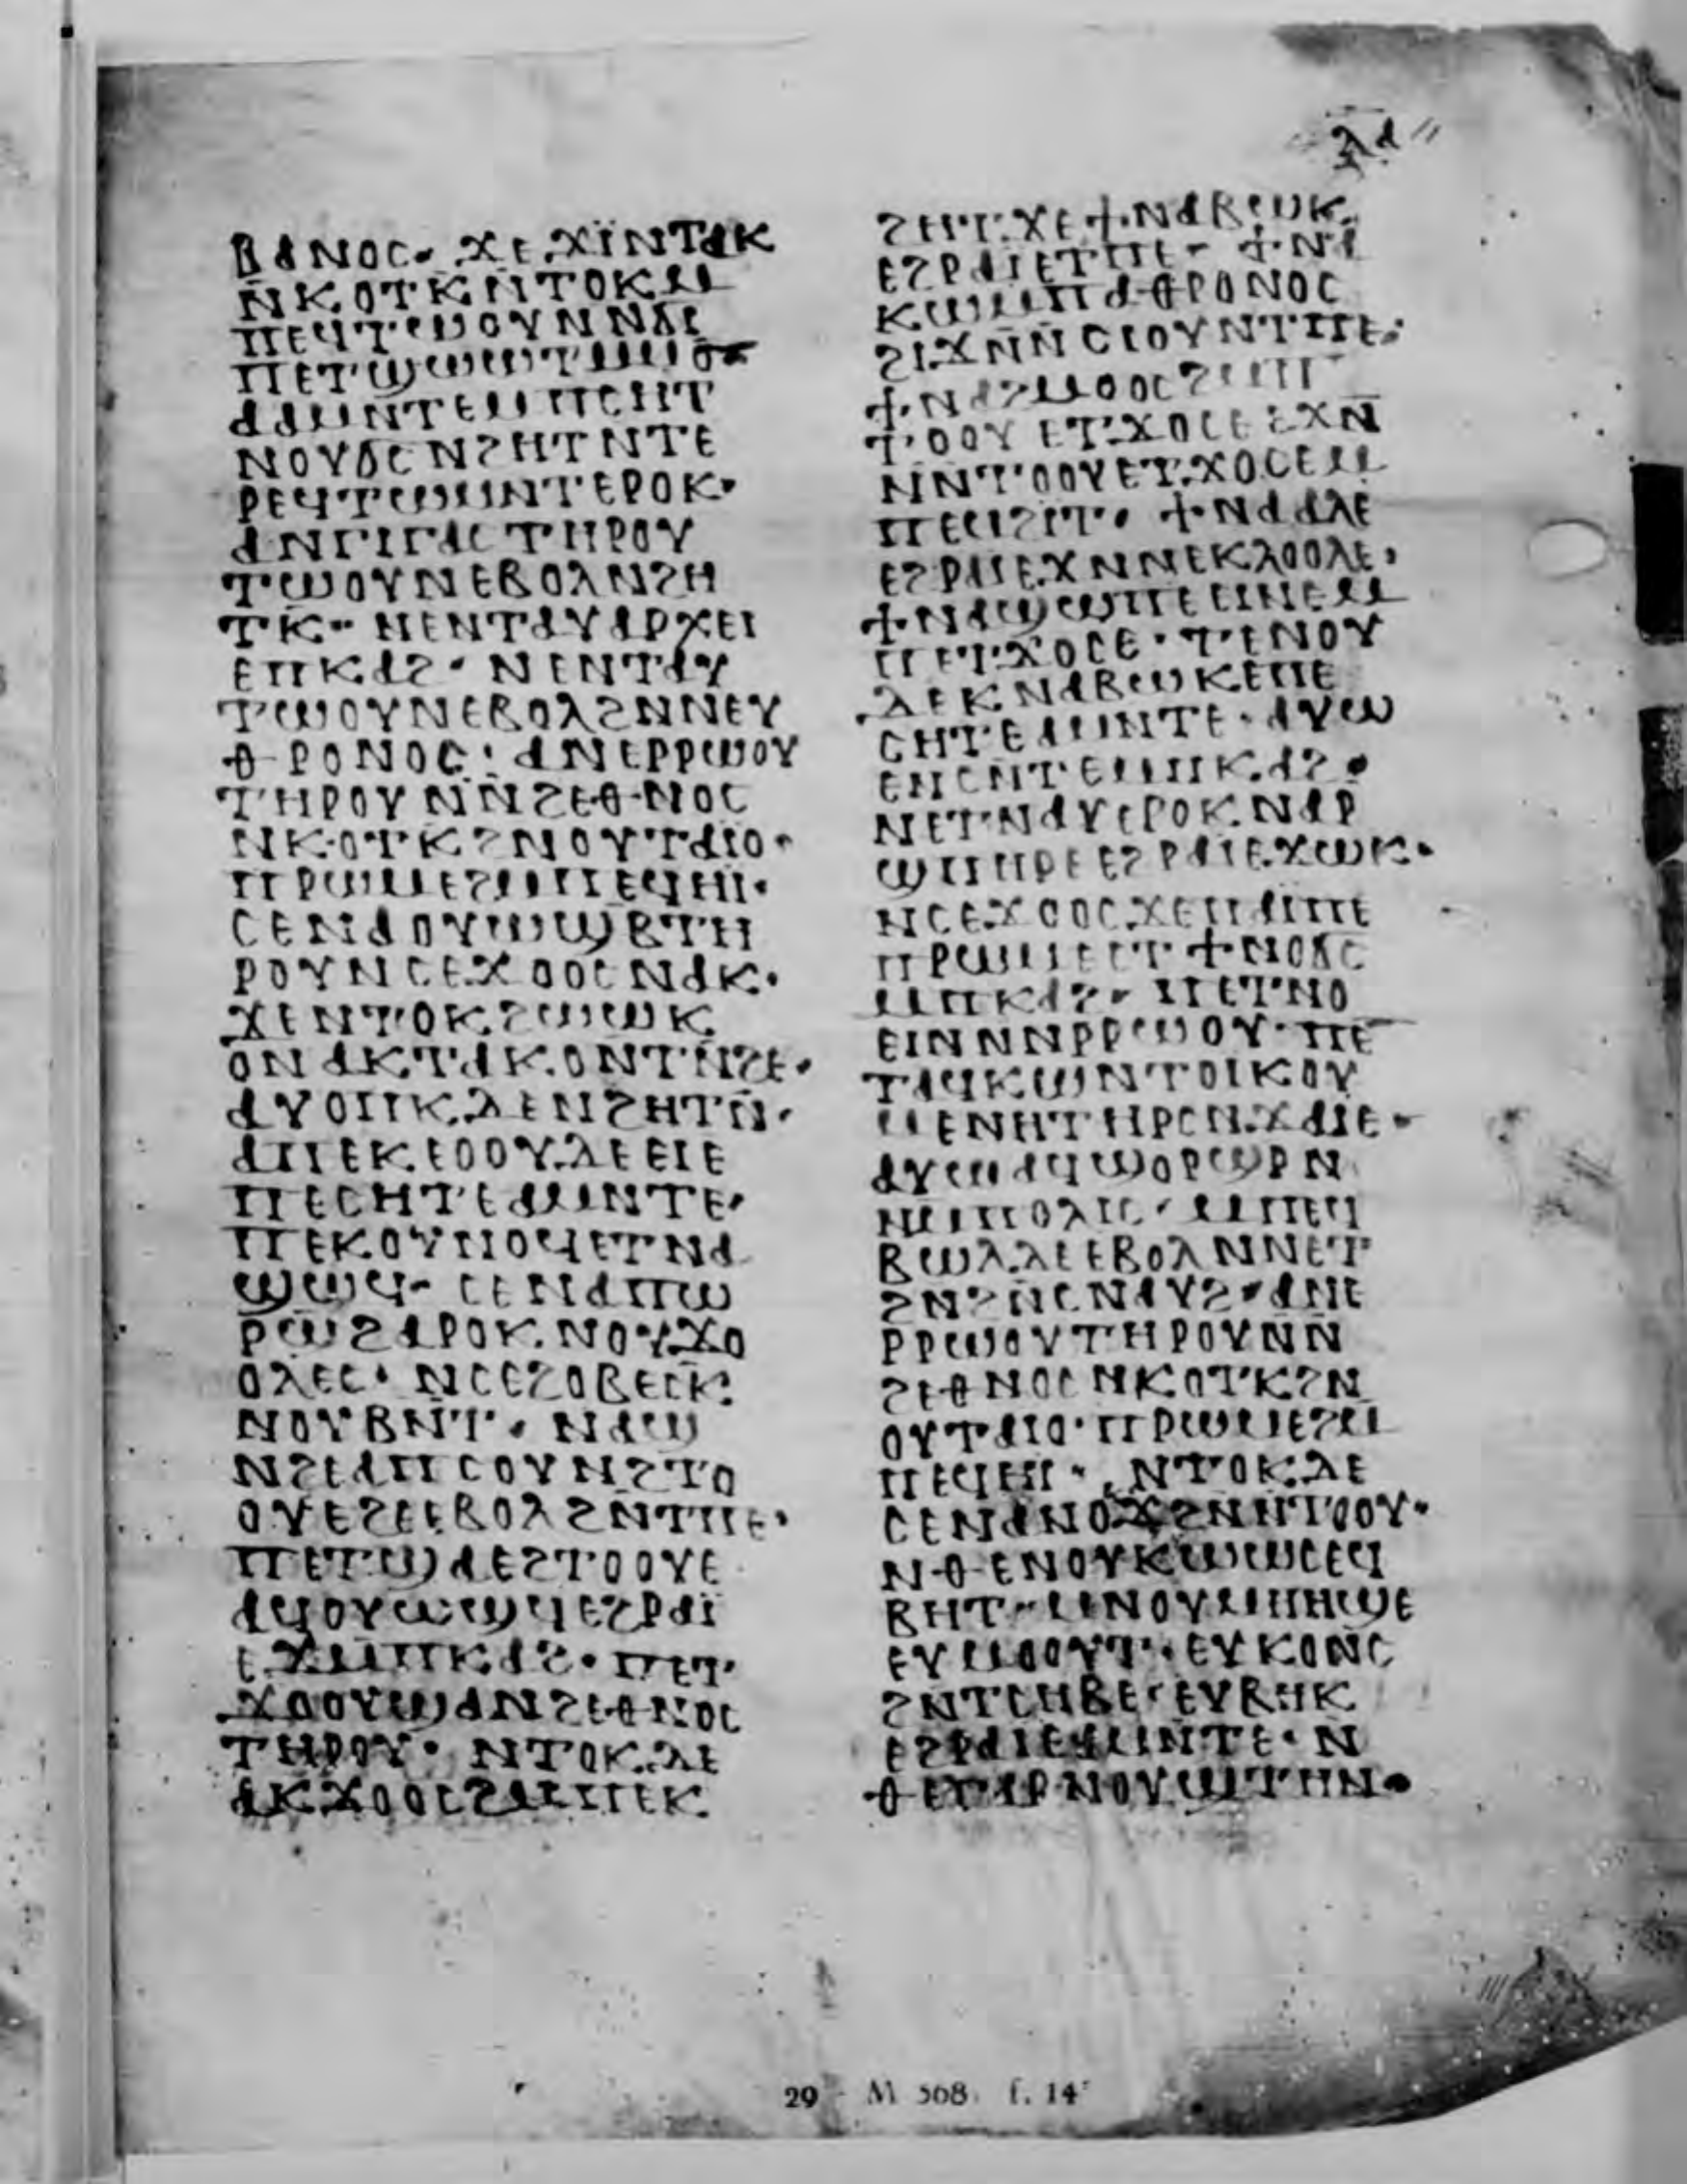 ⲗⲁ
ⲃⲁⲛⲟⲥ· ϫⲉϫⲓⲛⲧⲁⲕ
ⲛⲕⲟⲧⲕⲛⲧⲟⲕⲙ
ⲡⲉϥⲧⲱⲟⲩⲛⲛϭⲓ
ⲡⲉⲧϣⲱⲱⲧⲙⲙⲟⲛ
ⲁⲁⲙⲛⲧⲉⲙⲡⲥⲏⲧ
ⲛⲟⲩϭⲥⲛϩⲏⲧⲛⲧⲉ
ⲣⲉϥⲧⲱⲙⲛⲧⲉⲣⲟⲕ·
ⲁⲛⲅⲓⲅⲁⲥⲧⲏⲣⲟⲩ
ⲧⲱⲟⲩⲛⲉⲃⲟⲗⲛϩⲏ
ⲧⲕ· ⲛⲉⲛⲧⲁⲩⲁⲣⲭⲉⲓ
ⲉⲡⲕⲁϩ· ⲛⲉⲛⲧⲁⲩ
ⲧⲱⲟⲩⲛⲉⲃⲟⲗϩⲛⲛⲉⲩ
ⲑⲣⲟⲛⲟⲥ: ⲁⲛⲉⲣⲣⲱⲟⲩ
ⲧⲏⲣⲟⲩⲛⲛϩⲉⲑⲛⲟⲥ
ⲛⲕⲟⲧⲕϩⲛⲟⲩⲧⲁⲓⲟ·
ⲡⲣⲱⲙⲉϩⲙⲡⲉϥⲏⲓ·
ⲥⲉⲛⲁⲟⲩⲱϣⲃⲧⲏ
ⲣⲟⲩⲛⲥⲉϫⲟⲟⲥⲛⲁⲕ·
ϫⲉⲛⲧⲟⲕϩⲱⲱⲕ
ⲟⲛⲁⲕⲧⲁⲕⲟⲛⲧⲛϩⲉ·
ⲁⲩⲟⲡⲕⲇⲉⲛϩⲏⲧⲛ·
ⲁⲡⲉⲕⲉⲟⲟⲩⲇⲉⲉⲓⲉ
ⲡⲉⲥⲏⲧⲉⲁⲙⲛⲧⲉ·
ⲡⲉⲕⲟⲩⲛⲟϥⲉⲧⲛⲁ
ϣⲱϥ· ⲥⲉⲛⲁⲡⲱ
ⲣϣϩⲁⲣⲟⲕⲛⲟⲩϫⲟ
ⲟⲗⲉⲥ· ⲛⲥⲉϩⲟⲃⲉⲥⲕ
ⲛⲟⲩⲃⲛⲧ· ⲛⲁϣ
ⲛϩⲉⲁⲡⲥⲟⲩⲛϩⲧⲟ
ⲟⲩⲉϩⲉⲉⲃⲟⲗϩⲛⲧⲡⲉ·
ⲡⲉⲧϣⲁⲉϩⲧⲟⲟⲩⲉ
ⲁϥⲟⲩⲱϣϥⲉϩⲣⲁⲓ
ⲉϫⲙⲡⲕⲁϩ· ⲡⲉⲧ
ϫⲟⲟⲩϣⲁⲛϩⲉⲑⲛⲟⲥ
ⲧⲏⲣⲟⲩ· ⲛⲧⲟⲕⲇⲉ
ⲁⲕϫⲟⲟⲥϩⲙⲡⲉⲕ
ϩⲏⲧϫⲉϯⲛⲁⲃⲱⲕ
ⲉϩⲣⲁⲓⲉⲧⲡⲉ· ϯⲛⲁ
ⲕⲱⲙⲡⲁⲑⲣⲟⲛⲟⲥ
ϩⲓϫⲛⲛⲥⲓⲟⲩⲛⲧⲡⲉ·
ϯⲛⲁϩⲙⲟⲟⲥϩⲙⲡ
ⲧⲟⲟⲩⲉⲧϫⲟⲥⲉⲉϫⲛ
ⲛⲛⲧⲟⲟⲩⲉⲧϫⲟⲥⲉⲙ
ⲡⲉⲙϩⲓⲧ· ϯⲛⲁⲁⲗⲉ
ⲉϩⲣⲁⲓⲉϫⲛⲛⲉⲕⲗⲟⲟⲗⲉ·
ϯⲛⲁϣⲱⲡⲉⲉⲓⲛⲉⲙ
ⲡⲉⲧϫⲟⲥⲉ· ⲧⲉⲛⲟⲩ
ⲇⲉⲕⲛⲁⲃⲱⲕⲉⲡⲉ
ⲥⲏⲧⲉⲁⲙⲛⲧⲉ· ⲁⲩⲱ
ⲉⲛⲥⲛⲧⲉⲙⲡⲕⲁϩ·
ⲛⲉⲧⲛⲁⲩⲉⲣⲟⲕⲛⲁⲣ
ϣⲡⲏⲣⲉⲉϩⲣⲁⲓⲉϫⲱⲕ·
ⲛⲥⲉϫⲟⲟⲥϫⲉⲡⲁⲓⲡⲉ
ⲡⲣⲱⲙⲉⲉⲧϯⲛⲟϭⲥ
ⲙⲡⲕⲁϩ· ⲡⲉⲧⲛⲟ
ⲉⲓⲛⲛⲛⲣⲣⲱⲟⲩ· ⲡⲉ
ⲧⲁϥⲕⲱⲛⲧⲟⲓⲕⲟⲩ
ⲙⲉⲛⲏⲧⲏⲣⲥⲛϫⲁⲓⲉ·
ⲁⲩⲱⲁϥϣⲟⲣϣⲣⲛ
ⲛⲉⲡⲟⲗⲓⲥ· ⲙⲡⲉϥ
ⲃⲱⲗⲇⲉⲉⲃⲟⲗⲛⲛⲉⲧ
ϩⲛϩⲛⲥⲛⲁⲩϩ· ⲁⲛⲉ
ⲣⲣⲱⲟⲩⲧⲏⲣⲟⲩⲛⲛ
ϩⲉⲑⲛⲟⲥⲛⲕⲟⲧⲕϩⲛ
ⲟⲩⲧⲁⲓⲟ· ⲡⲣⲱⲙⲉϩⲙ
ⲡⲉϥⲏⲓ· ⲛⲧⲟⲕⲇⲉ
ⲥⲉⲛⲁⲛⲟϫⲕϩⲛⲛⲧⲟⲟⲩ·
ⲛⲑⲉⲛⲟⲩⲕⲱⲱⲥⲉϥ
ⲃⲏⲧ· ⲙⲛⲟⲩⲙⲏⲏϣⲉ
ⲉⲩⲙⲟⲟⲩⲧ· ⲉⲩⲕⲟⲛⲥ
ϩⲛⲧⲥⲏⲃⲉ· ⲉⲩⲃⲏⲕ
ⲉϩⲣⲁⲓⲉⲁⲙⲛⲧⲉ· ⲛ
ⲑⲉⲅⲁⲣⲛⲟⲩϣⲧⲏⲛ·
29 M 568 f. 14ʳ